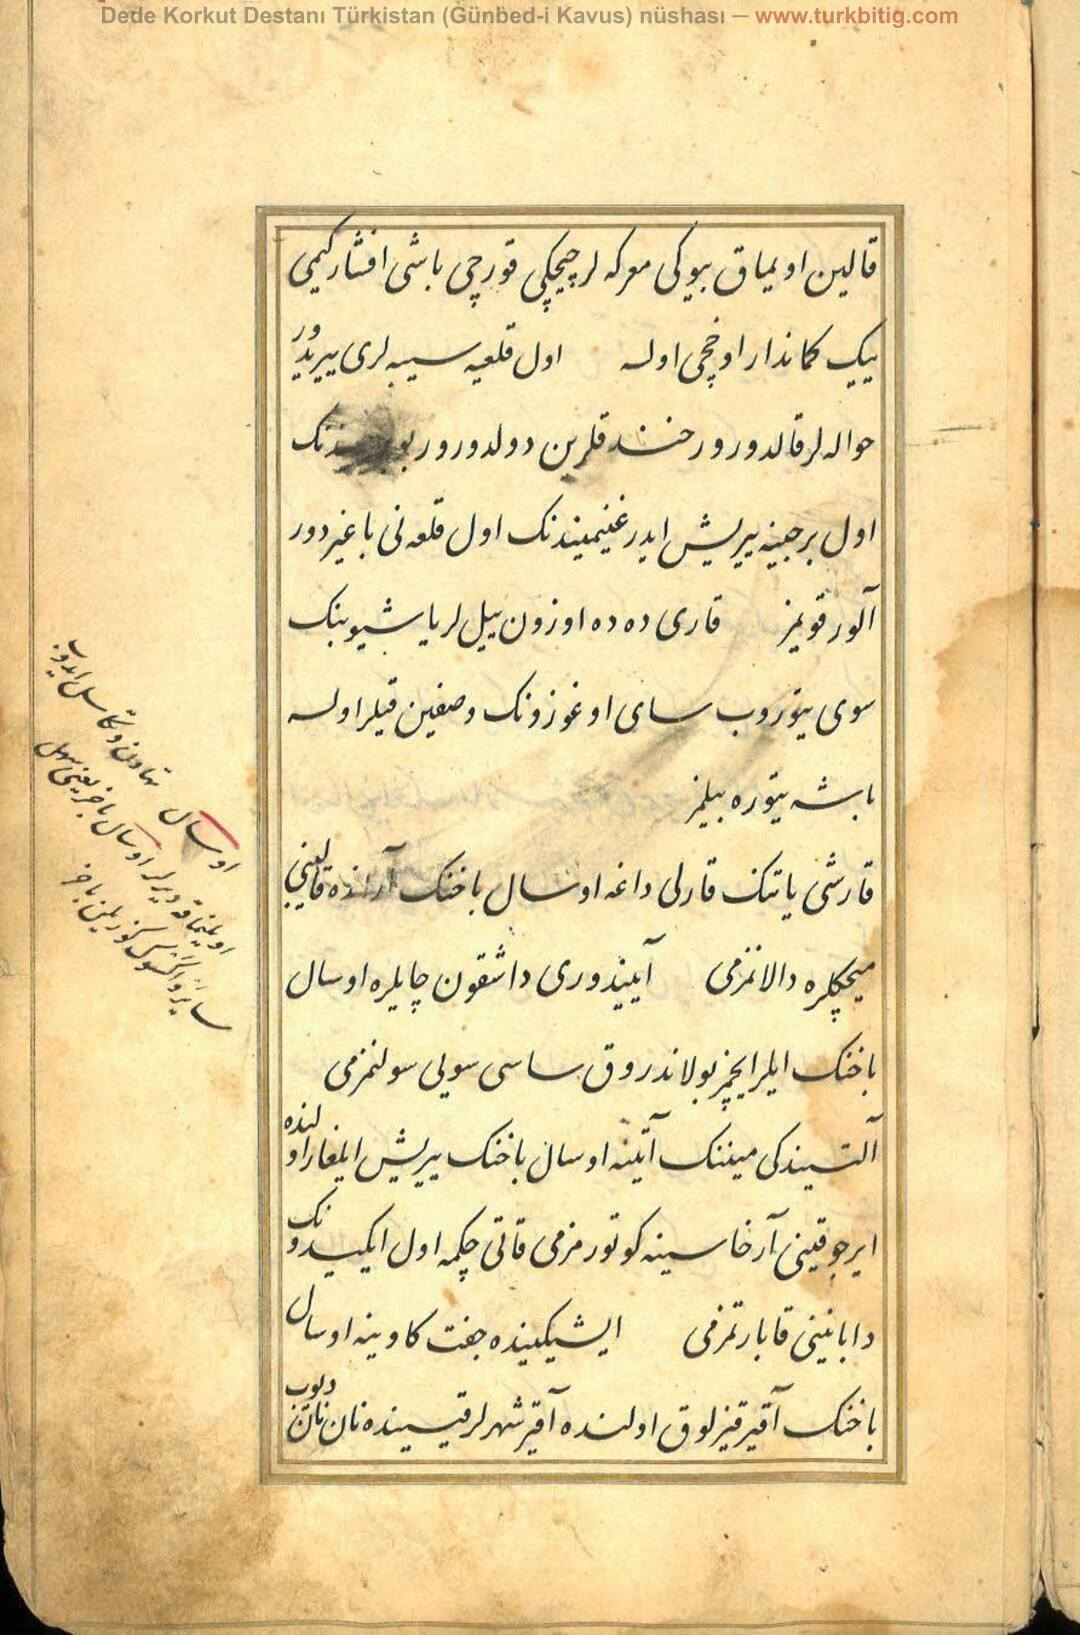 Dede Korkut Destanı Türkistan (Günbed-i Kavus) nüshası — www.turkbitig.com
قالین اویماق بیوکی معرکه لر چیچکی قورچی باشی افشار کیمی
ییک کماندار اوخچی اولسه اول قلعیه سیبه لری ییریدور
حواله لر قالدورور خندقلرین دولدورور
اول برجینه ییریش ایدر غنیمیندنک اول قلعه نی باغیردور
آلور قویمز قاری ده ده اوزون ییل لر یاشیوبنک
سوی یتوروب سای اوغوزونک وصفین قیلر اولسه
باشه یتوره بیلمز
قارشی یاتنک قارلی داغه اوسال باخنک آرانده قالینی
میچکلره دالانمزمی آییندوری داشقون چایلره اوسال
باخنک ایلر ایچمز بولاندروق ساسی سویی سولنمزمی
آلتیندکی میننک آتینه اوسال باخنک ییریش ایلغار اولنده
ایر جوقینی آرخاسینه کوتورمزمی قاتی چکمه اول ایکیدونک
دابانینی قابارتمزمی ایشیکینده جفت کاوینه اوسال
باخنک آقیر قیزلوق اولنده آقیر شهر لر قیسینده نان نان دیوب
اوسال تهاون و تکاسل ایدوب